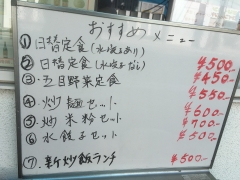 おすすめメニュー
① 日替定食(水餃子あり) ¥500-
② 日替定食(水餃子なし) ¥450-
③ 五目野菜定食 ¥550-
④ 炒麺セット ¥600-
⑤ 炒米粉セット ¥700-
⑥ 水餃子セット ¥500
⑦ 新炒飯ランチ ¥500-